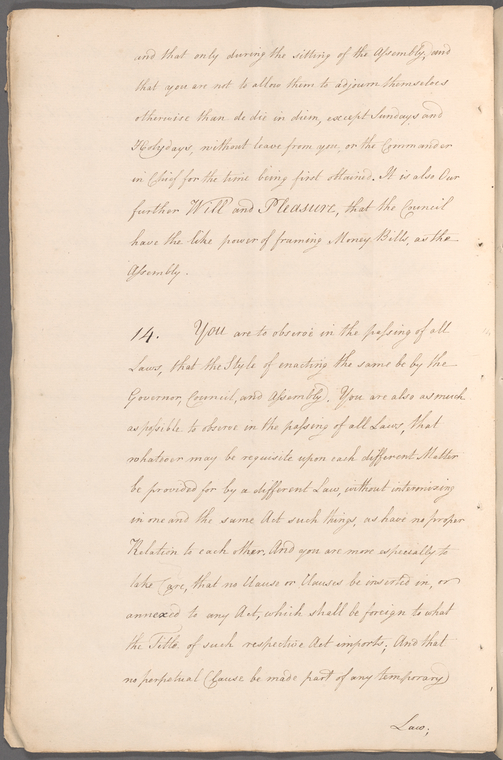 and that only during the sitting of the Assembly, and
that you are not to allow them to adjourn themselves
otherwise than de die in diem, except Sundays and
Holydays, without leave from you, or the Commander
in Chief for the time being first obtained. It is also Our
further Will and Pleasure, that the Council
have the like power of framing Money Bills, as the
Assembly.
14. You are to observe in the passing of all
Laws, that the Style of enacting the same be by the
Governor, Council, and Assembly. You are also as much
as possible to observe in the passing of all Laws, that
whatever may be requisite upon each different Matter
be provided for by a different Law, without intermixing
in one and the same Act such things, as have no proper
Relation to each other. And you are more especially to
take Care, that no Clause or Clauses be inserted in, or
annexed to any Act, which shall be foreign to what
the Title of such respective Act imports; And that
no perpetual Clause be made part of any temporary
Law;